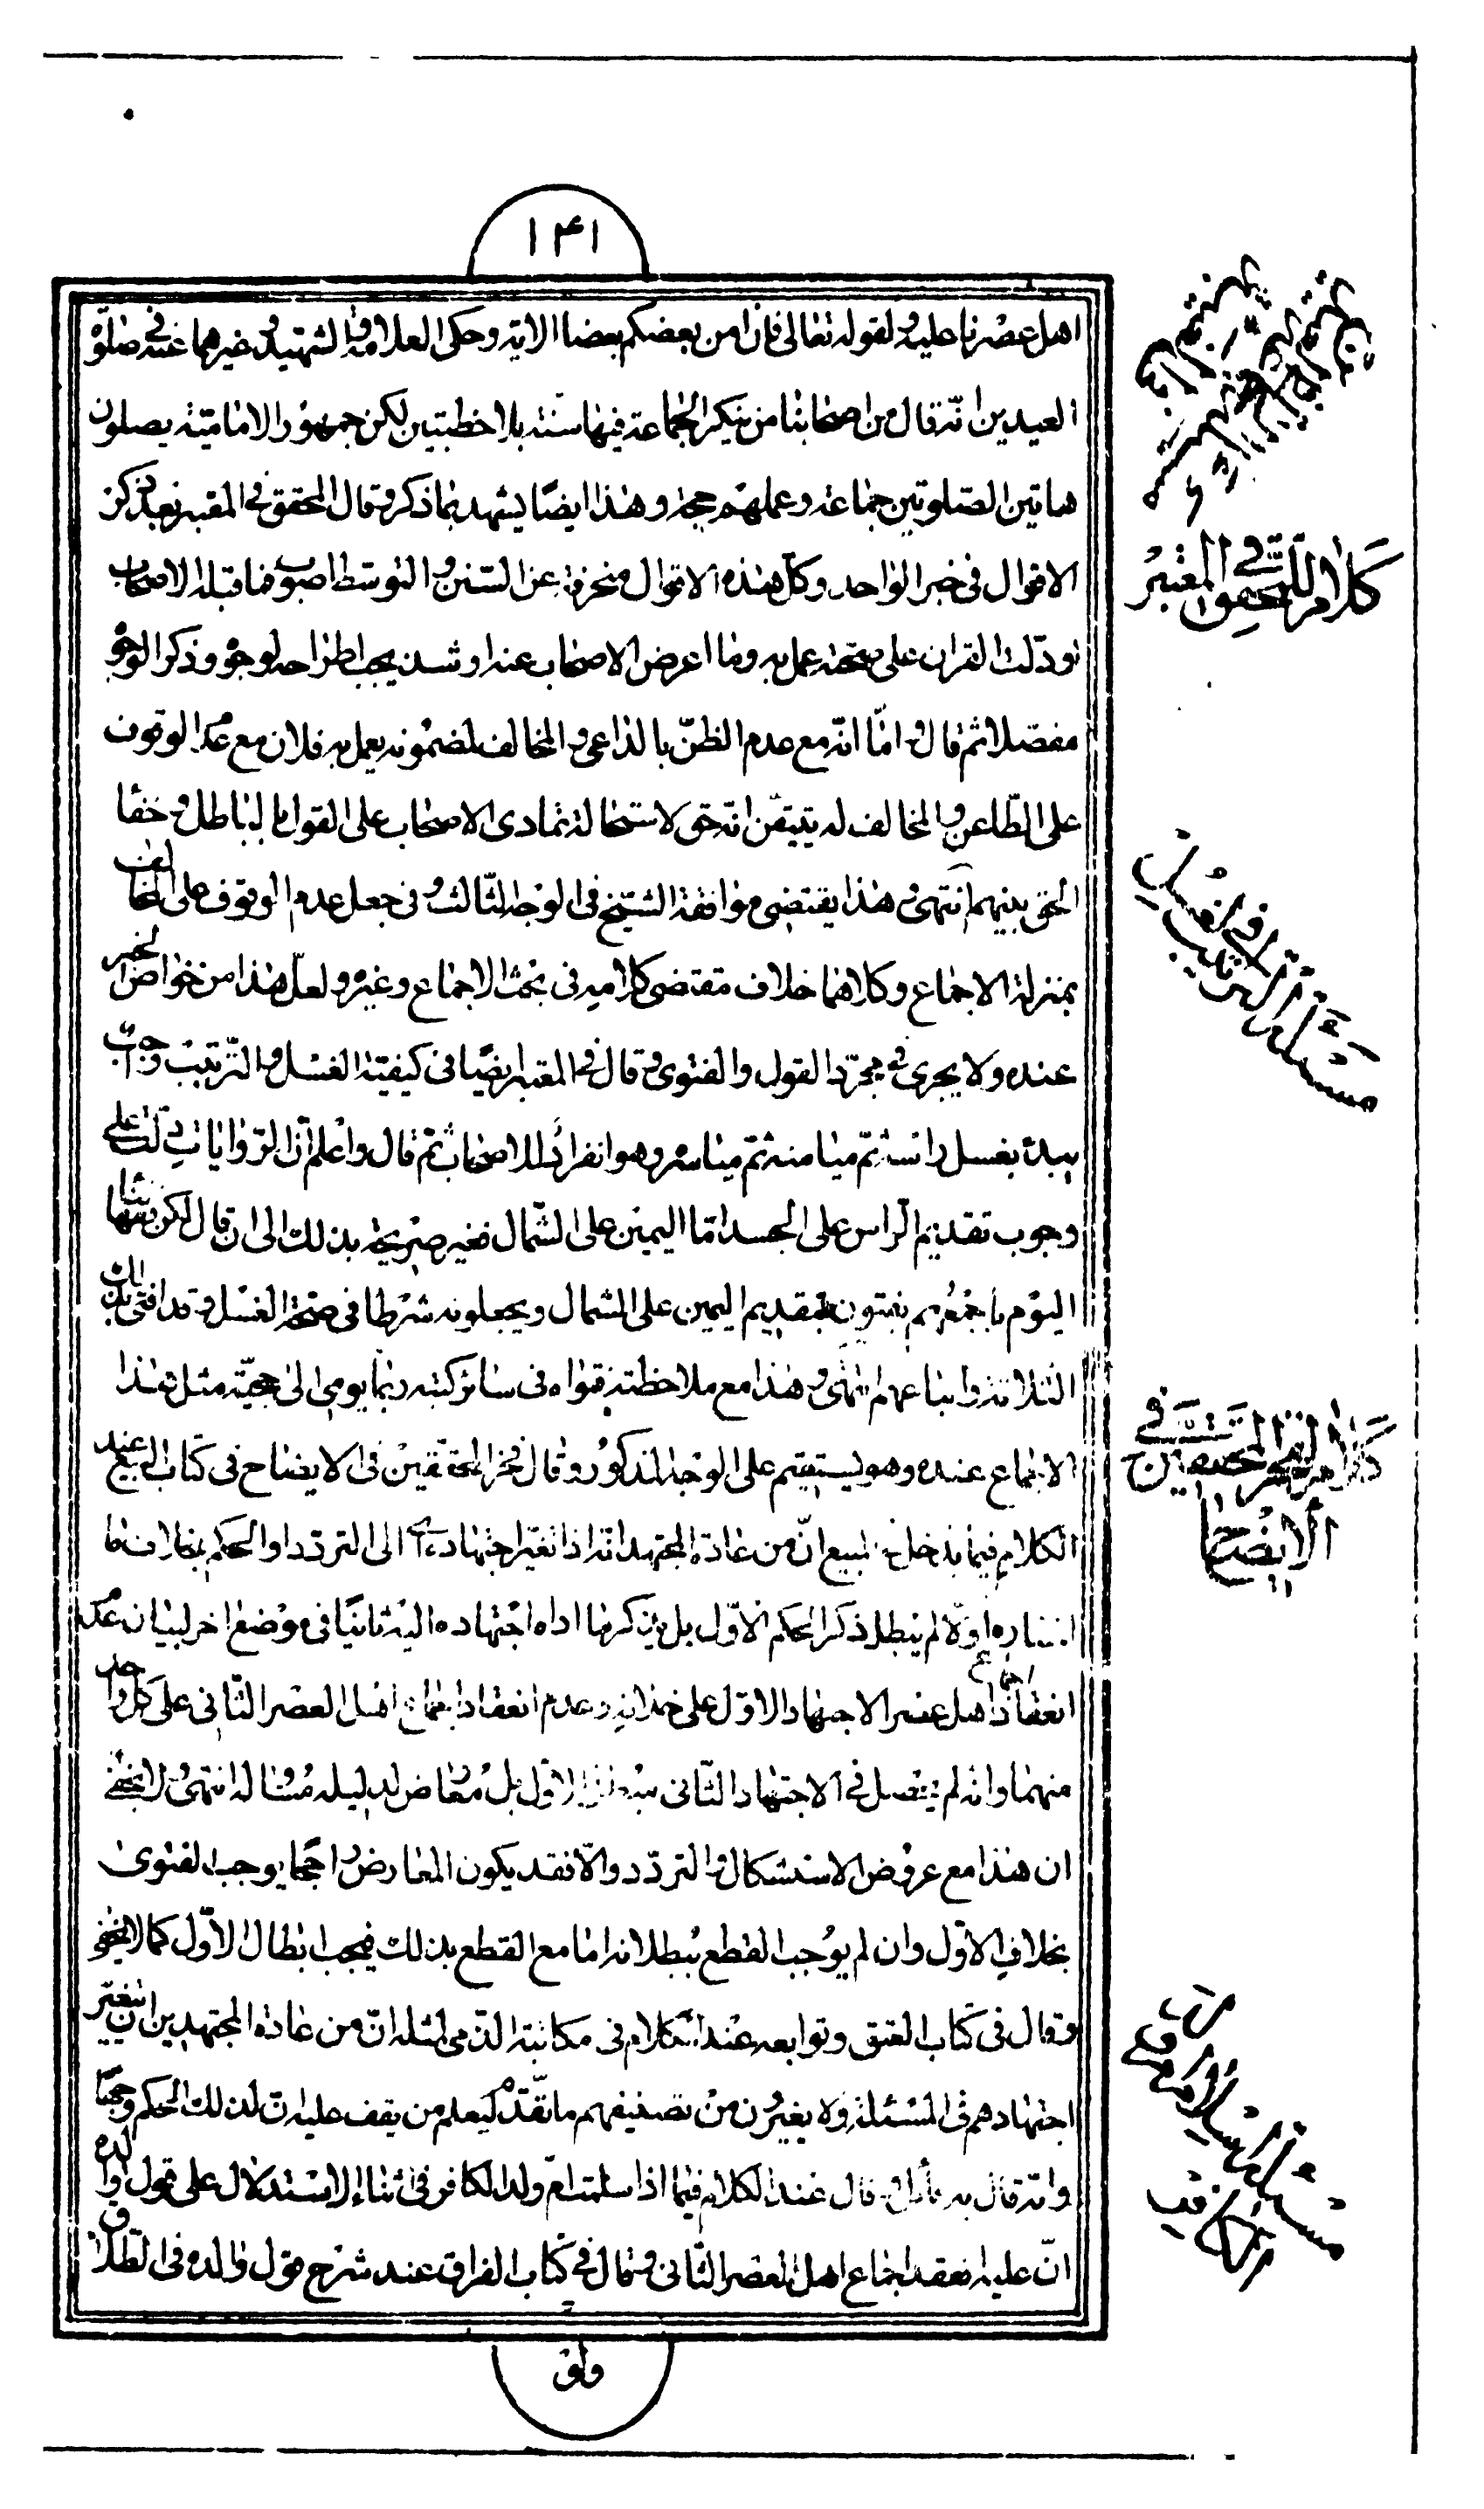 ۱۴۱
اهل عصرنا عليه لقوله تعالى فان امن بعضكم بعضا الاية وحكى العلامة والشهيد وغيرهما عنه في صلوة
العيدين انّه قال من اصحابنا من ينكر الجماعة فيها سنّة بلا خطبتين لكن جمهور الامامية يصلون
هاتين الصّلوتين جماعة وعملهم حجة وهذا ايضًا يشهد بما ذكر وقال المحقق في المعتبر بعد ذكر
الاقوال في خبر الواحد وكلّ هذه الاقوال منحرفة عن السّنن والتوسّط اصوب فما قبله الاصحاب
او دلّت القران على صحّته عمل به وما اعرض الاصحاب عنه او شذ يجب اطراحه لوجوه وذكر الوجوه
مفصّلا ثم قال امّا انّه مع عدم الظنّ بالطاعن والمخالف لمضمونه يعمل به فلان مع عدم الوقوف
على الطّاعن والمخالف له يتيقّن انّه حق لاستحالة تمادى الاصحاب على القول بالباطل وخفا
الحق بينهم انتهى وهذا يقتضى موافقة الشيخ في الوجه الثّالث وفى جعل عدم الوقوف على المخالف
بمنزلة الاجماع وكلاهما خلاف مقتضى كلاميه فى بحث الاجماع وغيره ولعلّ هذا من خواصّ الخبر
عنده ولا يجرى في مجرّد القول والفتوى وقال في المعتبر ايضًا فى كيفيّة الغسل والتّرتيب واجب
يبدء بغسل راسه ثم ميامنه ثم مياسره وهو انفراد الاصحاب ثمّ قال واعلم انّ الرّوايات دلّت على
وجوب تقديم الرّاس على الجسد امّا اليمين على الشّمال فغير صريحة بذلك الى ان قال لكن فقهائنا
اليوم باجمعهم يفتون بتقديم اليمين على الشمال ويجعلونه شرطا فى صحّة الغسل وقد افتى بذلك
الثلاثة واتباعهم انتهى وهذا مع ملاحظة فتواه فى سائر كتبه ربما يومى الى حجيّة مثل هذا
الاجماع عنده وهو يستقيم على الوجه المذكور وقال فخر المحققين فى الايضاح فى كتاب البيع عند
الكلام فيما يدخل المبيع انّ من عادة المجتهد انّه اذا تغيّر اجتهاده الى التردّد او الحكم بخلاف ما
اختاره اوّلا لم يبطل ذكر الحكم الاوّل بل يذكر ما اداه اجتهاده اليه ثانيًا فى موضع اخر لبيان عدم
انعقاد اجماع اهل عصر الاجتهاد الاوّل على خلافه وعدم انعقاد اجماع اهل العصر الثّانى على كلّ واحد
منهما وانه لم يحصل في الاجتهاد الثّانى مبطل للاوّل بل معارض لدليله مساو له انتهى ولا يخفى
ان هذا مع عروض الاستشكال والتردّد والّا فقد يكون المعارض راجحًا يوجب الفتوى
بخلاف الاوّل وان لم يوجب القطع ببطلانه امّا مع القطع بذلك فيجب ابطال الاوّل كما لا يخفى
وقال فى كتاب العتق وتوابعه عند الكلام فى مكاتبة الذّمى لمثله انّ من عادة المجتهدين ان يتغيّر
اجتهادهم فى المسئلة ولا يغيّرون من تصنيفهم ما تقدّم ليعلم من يقف عليه ان لذلك الحكم وجهًا
وانّه قال به قائل وقال عند الكلام فيما اذا اسلمت امّ ولد الكافر فى اثناء الاستدلال على قول والده
انّ عليه انعقد اجماع اهل العصر الثّانى وقال في كتاب الفراق عند شرح قول والده فى الطّلاق
ولو
كلام للمحقق في المعتبر
كلام لفخر المحققين في الايضاح